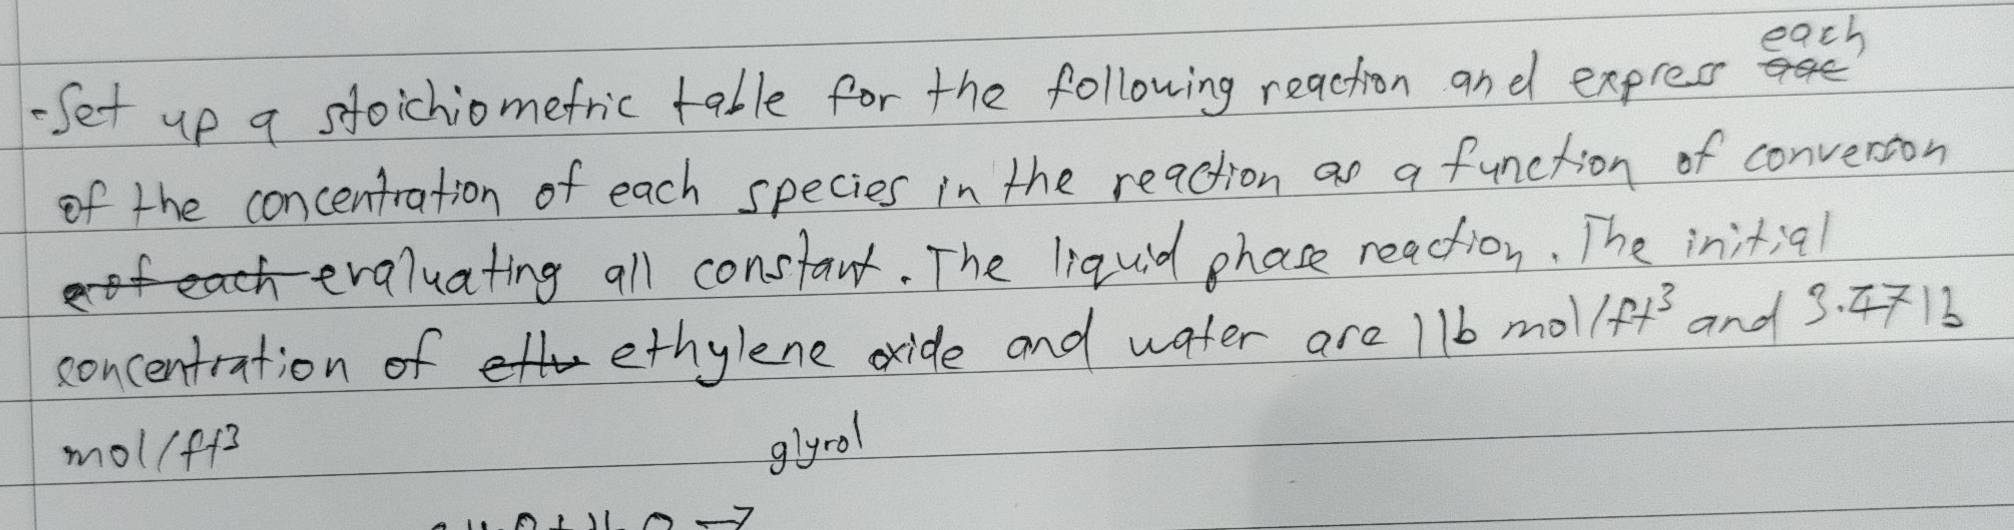 each
-Set up a stoichiometric table for the following reaction and express
of the concentration of each species in the reaction as a function of conversion
evaluating all constant. The liquid phase reaction. The initial
concentration of ethylene oxide and water are 1 lb mol/ft³ and 3.47 lb
mol/ft³
glycol